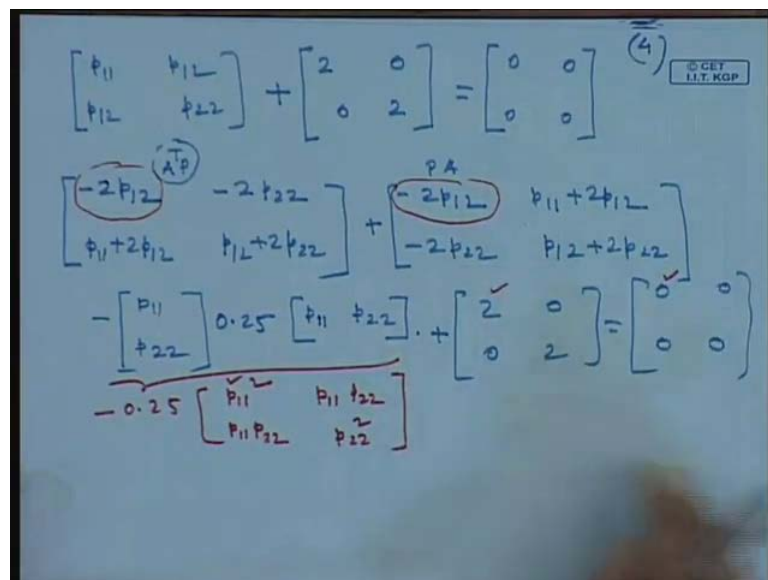 (4)
© CET
I.I.T. KGP
[p₁₁ p₁₂; p₁₂ p₂₂] + [2 0; 0 2] = [0 0; 0 0]
AᵀP
PA
[-2p₁₂ -2p₂₂; p₁₁+2p₁₂ p₁₂+2p₂₂] + [-2p₁₂ p₁₁+2p₁₂; -2p₂₂ p₁₂+2p₂₂]
-[p₁₁; p₂₂] 0.25 [p₁₁ p₂₂]. + [2 0; 0 2] = [0 0; 0 0]
-0.25 [p₁₁² p₁₁p₂₂; p₁₁p₂₂ p₂₂²]